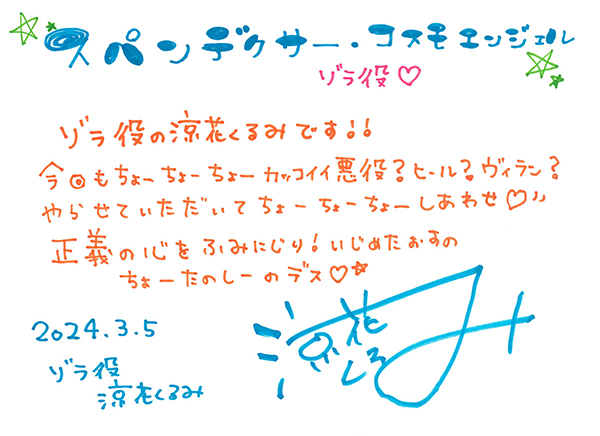 スペンデクサー・コスモエンジェル
ゾラ役♡
ゾラ役の涼花くるみです!!
今回もちょーちょーちょーカッコイイ悪役?ヒール?ヴィラン?
やらせていただいてちょーちょーちょーしあわせ♡"
正義の心をふみにじり!いじめたおすの
ちょーたのしーのデス♡☆
2024.3.5
ゾラ役
涼花くるみ
涼花
くる